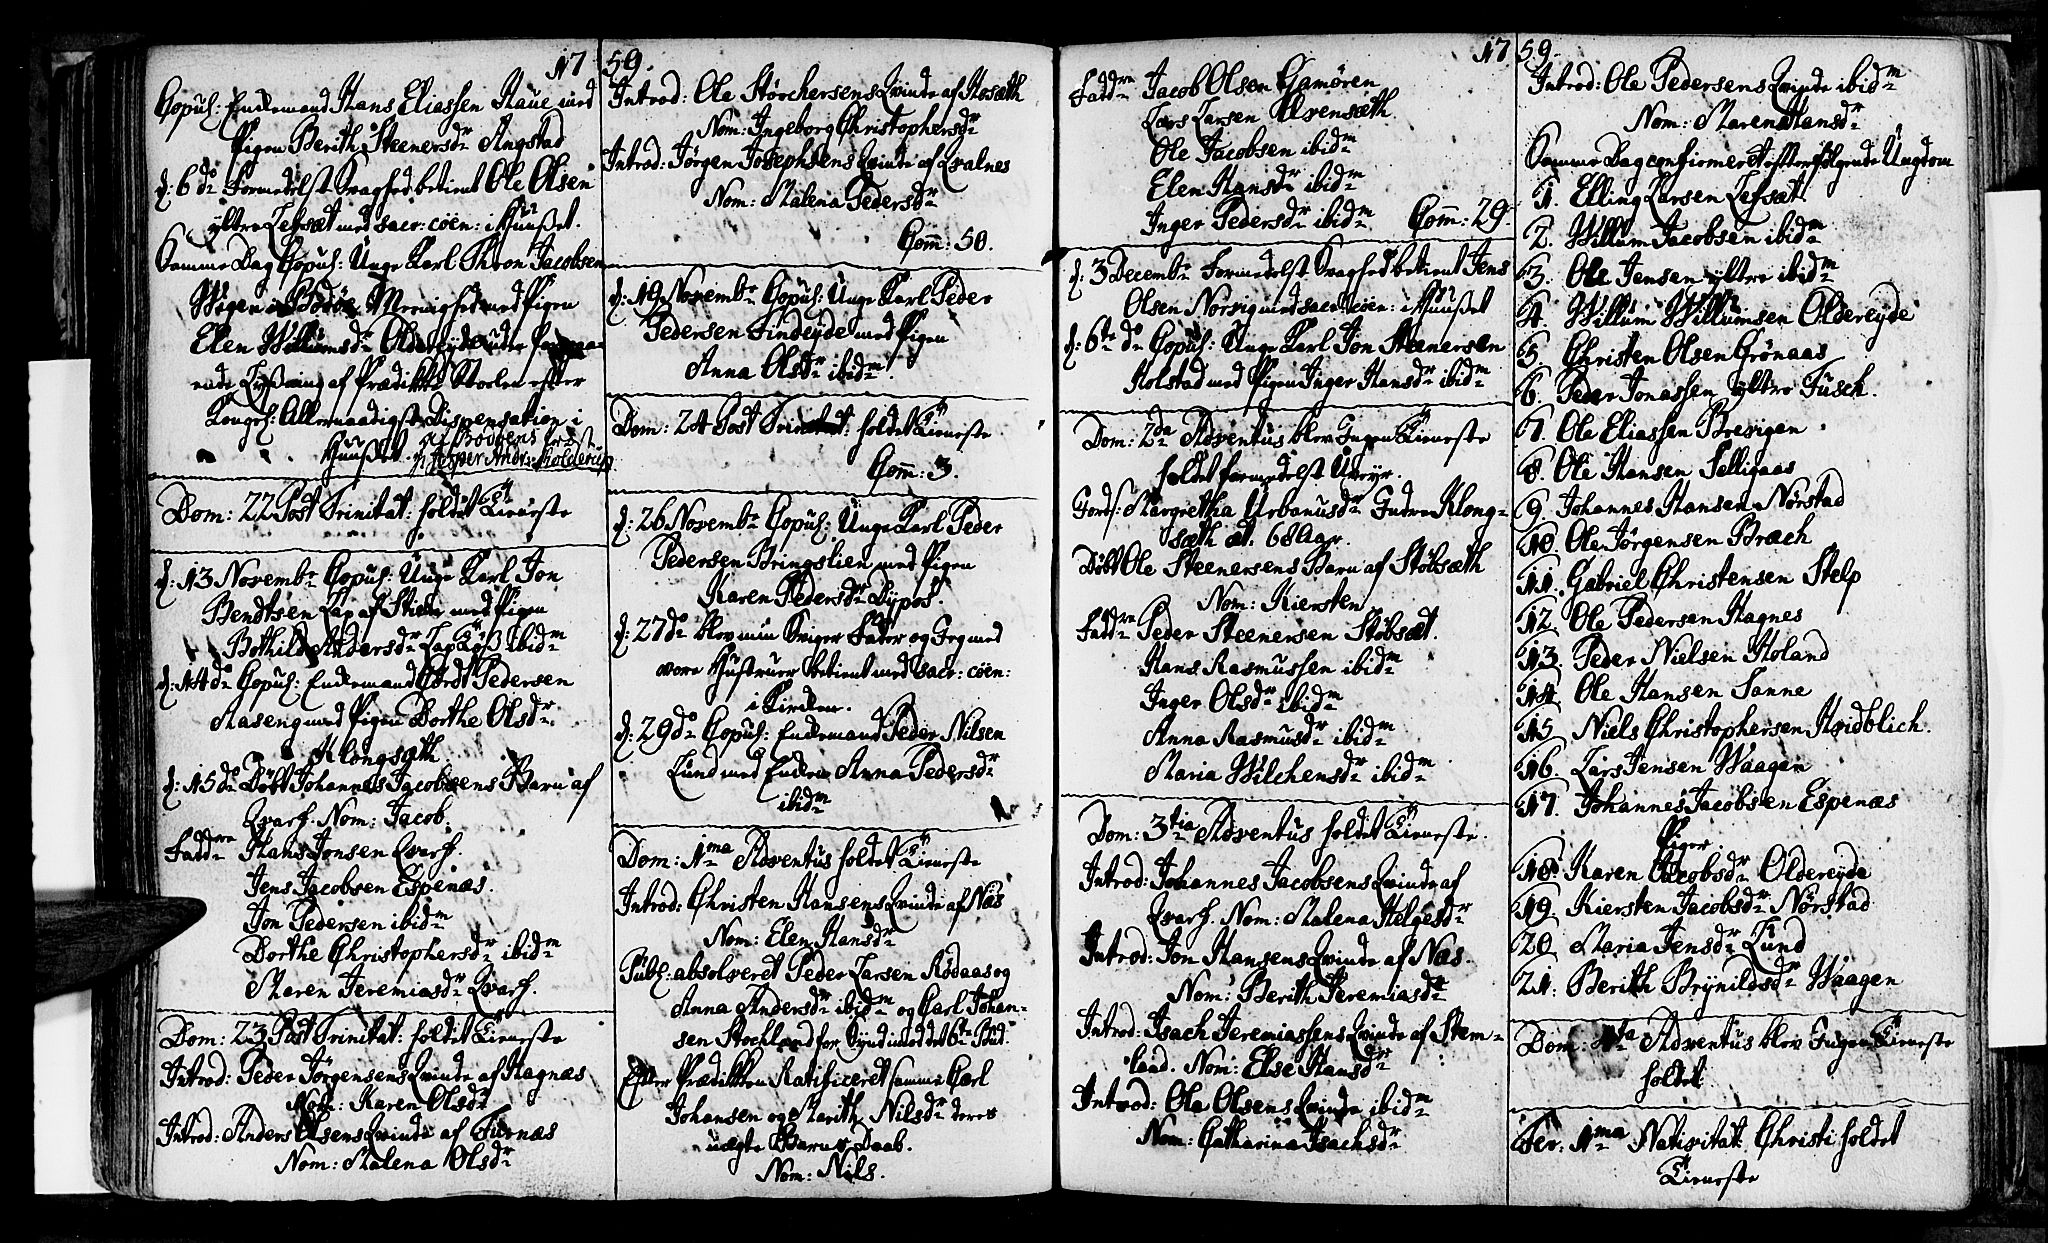 1759.
Copul: Enkemand Hans Eliassen Haue med
Pigen Berith Steenersdr Angstad
d: 6 do Formedelst Svaghed betient Ole Olsen
yttre Lefsæt med sacr: coen: i Huuset.
Samme Dag Copul: Unge Karl Thron Jacobsen
Wigen i Bodøe Menighed med Pigen
Elen Willumsdr Oldereyde uden
ende Lysning af Prædikke Stoelen efter
Kongel: Allernaadigste Dispensation i
Huuset af Bodøens Præst
Hr Jesper Andr: Kolderup
Dom: 22 Post Trinitat: holdet Tieneste
d: 13 Novembr Copul: Unge Karl Jon
Bendtsen Lap af med Pigen
Bothild Andersdr Lap ibidm
d: 14 do Copul: Enkemand Cordt Pedersen
Aaseng med Pigen Dorthe Olsdr
Klongsæth
d: 15 do Döbt Johannes Jacobsens Barn af
Qvarf. Nom: Jacob.
Faddre Hans Jonsen Qvarf.
Jens Jacobsen Espenæs.
Jon Pedersen ibidm
Dorthe Christophersdr ibidm
Maren Jeremiasdr Qvarf.
Dom: 23 Post Trinitat: holdet Tieneste
Introd: Peder Jörgensens Qvinde af Hagnæs
Nom: Karen Olsdr
Introd: Anders Olsens Qvinde af Furnæs
Nom: Malena Olsdr
Introd: Ole Storchersens Qvinde af Hosæth
Nom: Ingeborg Christophersdr
Introd: Jörgen Josephsens Qvinde af Qvalnes
Nom: Malena Pedersdr
Com: 50.
d: 19 Novembr Copul: Unge Karl Peder
Pedersen Findeyde med Pigen
Anna Olsdr ibidm
Dom: 24 Post Trinitat: holdet Tieneste
Com: 3.
d: 26 Novembr Copul: Unge Karl Peder
Pedersen Bringslien med Pigen
Karen Pedersdr Dypos.
d: 27 do blev min Sviger Fader og Jeg med
vore Hustruer betient med sacr: coen:
i Kirken.
d: 29 do Copul: Enkemand Peder Nilsen
Lund med Enken Anna Pedersdr
ibidm
Dom: 1ma Adventus holdet Tieneste
Introd: Christen Hansens Qvinde af Næs
Nom: Elen Hansdr
Publ: absolveret Peder Larsen Rödaas og
Anna Andersdr ibidm og Carl Johan-
sen Stochland for Synd imod det 6te Bud.
Efter Prædikken Ratificeret samme Carl
Johansen og Marith Nilsdr deres
uægte Barns Daab.
Nom: Nils.
1759
Faddre Jacob Olsen Gamören
Lars Larsen Elvensæth
Ole Jacobsen ibidm
Elen Hansdr ibidm
Inger Pedersdr ibidm Com: 29.
d: 3 Decembr Formedelst Svaghed betient Jens
Olsen Norvig med sacr: coen: i Huuset
d: 6te do Copul: Unge Karl Jon Steenersen
Holstad med Pigen Inger Hansdr ibidm
Dom: 2da Adventus blev Ingen Tieneste
holdet formedelst Uveyr.
Jords: Margretha Urbanusdr Indre Klong-
sæth æt. 68 Aar.
Döbt Ole Steenersens Barn af Stöbsæth
Nom: Kiersten
Faddre Peder Steenersen Stöbsæt.
Hans Rasmussen ibidm
Inger Olsdr ibidm
Anna Rasmusdr ibidm
Maria Wilchensdr ibidm
Dom: 3tia Adventus holdet Tieneste.
Introd: Johannes Jacobsens Qvinde af
Qvarf. Nom: Malena Helgesdr
Introd: Jon Hansens Qvinde af Næs.
Nom: Berith Jeremiasdr
Introd: Isach Jeremiassens Qvinde af Stem-
land. Nom: Else Hansdr
Introd: Ole Olsens Qvinde ibidm
Nom: Catharina Isachsdr
Introd: Ole Pedersens Qvinde ibidm
Nom: Maren Hansdr
Samme Dag confirmeret efterfölgende Ungdom
1. Elling Larsen Lefsæt.
2. Willum Jacobsen ibidm
3. Ole Jensen yttre ibidm
4. Willum Willumsen Oldereyde
5. Christen Olsen Grönaas
6. Peder Jonassen yttre Fusch.
7. Ole Eliassen Brevigen.
8. Ole Hansen Selligaas
9. Johannes Hansen Nørstad
10. Ole Jörgensen Bræch
11. Gabriel Christensen Stelp
12. Ole Pedersen Hagnes
13. Peder Nielsen Holand
14. Ole Hansen Sanne
15 Niels Christophersen Hvidblich.
16. Lars Jensen Waagen
17. Johannes Jacobsen Espenæs
Piger.
18. Karen Jacobsdr Oldereyde
19. Kiersten Jacobsdr Nørstad
20. Maria Jensdr Lund
21. Berith Brynildsdr Waagen
Dom: 4ta Adventus blev Ingen Tieneste
holdet.
Fer: 1ma Nativitat: Christi holdet
Tieneste